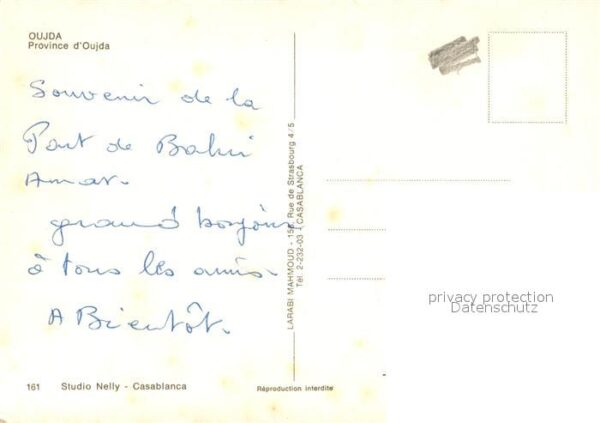 OUJDA
Province d'Oujda
Souvenir de la
Part de Bahri
Amar.
grand bonjour
à tous les amis.
A Bientôt.
LARABI MAHMOUD - 15, Rue de Strasbourg 4/5
Tél. 2-232-03 - CASABLANCA
privacy protection
Datenschutz
161 Studio Nelly - Casablanca
Réproduction interdite